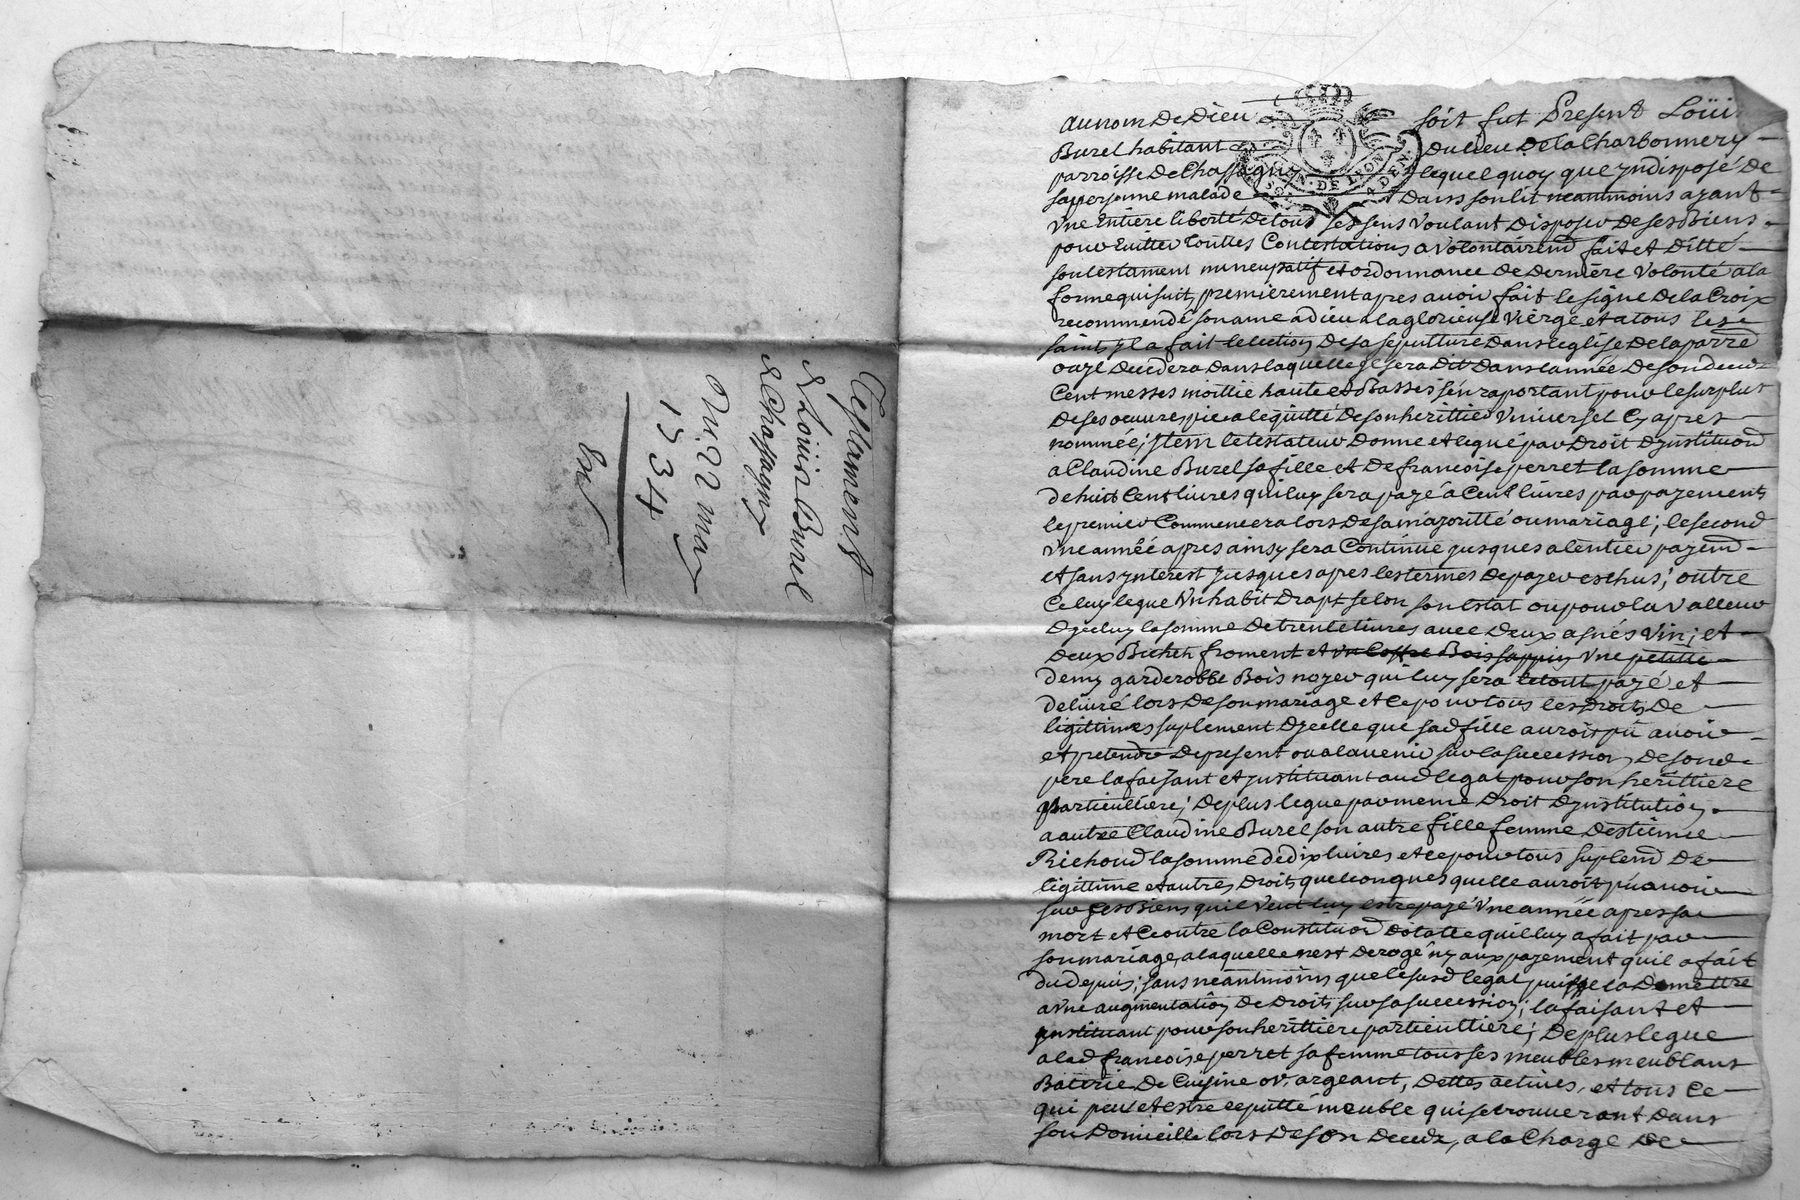 Testament
de Loüis Burel
de Chassagny
Du 22 mar
1734
au nom De Dieu soit fut Present Loüis
Burel habitant Du lieu De la Charbonnery
parroisse De Chassagny lequel quoy que yndisposé De
sa personne malade Dans son lit neantmoins ayant
Vne Entiere liberté De tous ses sens Voulant Disposer De ses Biens
pour Euitter touttes Contestations a Volontairemt fait et Ditté
son testament nuncupatif et ordonnance De Derniere Volonté a la
forme qui suit, premierement apres auoir fait le signe De la Croix
recommendé son ame a Dieu a la glorieuse Vierge et a tous les
saints yl a fait lelection De sa sepulture Dans leglise De la parre
ou yl Decedera Dans laquelle yl sera Dit Dans lannée De son Deceds
Cent messes moittie haute et Basses sen raportant pour le surplus
De ses oeuure pie a lequitté De son herittier Vniuersel Cy apres
nommée; Jtem le testateur Donne et legué par Droit Dynstituon
a Claudine Burel sa fille et De francoise perret la somme
de huit Cent liures qui luy sera payé a Cent liures par payements
le premier Commencera lors De sa majoritté ou mariage; le second
Vne année apres ainsy sera Continüe jusques a lentier payemt
et sans ynterest jusques apres les termes De payer eschus; outre
Ce luy legue Vn habit Drapt selon son Estat ou pour la Valleur
Dyceluy la somme De trente liures auec Deux asnés Vin; et
Deux Bichets froment et vn Coffre Bois sappin Vne petitte
demy garderobbe Bois noyer qui luy sera le tout payé et
deliuré lors De son mariage et ce pour tous les Droits De
legittimes suplement Dycelle que sad fille auroit pü auoir
et pretendre De present ou a lauenir sur la succession De sond
pere la faisant et ynstituant aud legat pour son herittiere
particulliere; De plus legue par meme Droit Dynstitution
a autre Claudine Burel son autre fille femme Destienne
Richoud la somme de dix liures et ce pour tous suplemt De
legittime et autres Droits quelconques quelle auroit pü auoir
sur ses Biens quil Veut luy estre payé Vne année apres sa
mort et Ce outre la Constituon Dotalle quil luy a fait par
son mariage, a laquelle nest Derogé ny aux payement quil a fait
du depuis; sans neantmoins que le susd legat puisse la Demettre
a Vne augmentation De Droits sur sa succession; la faisant et
ynstituant pour son herittiere particulliere; De plus legue
a lad francoise perret sa femme tous ses meubles meublans
Batterie De Cuisine or, argeant, Dettes actiues, et tous Ce
qui peut Et estre reputté meuble qui se trouueront Dans
son Domicille lors De son Deceds, a la Charge De